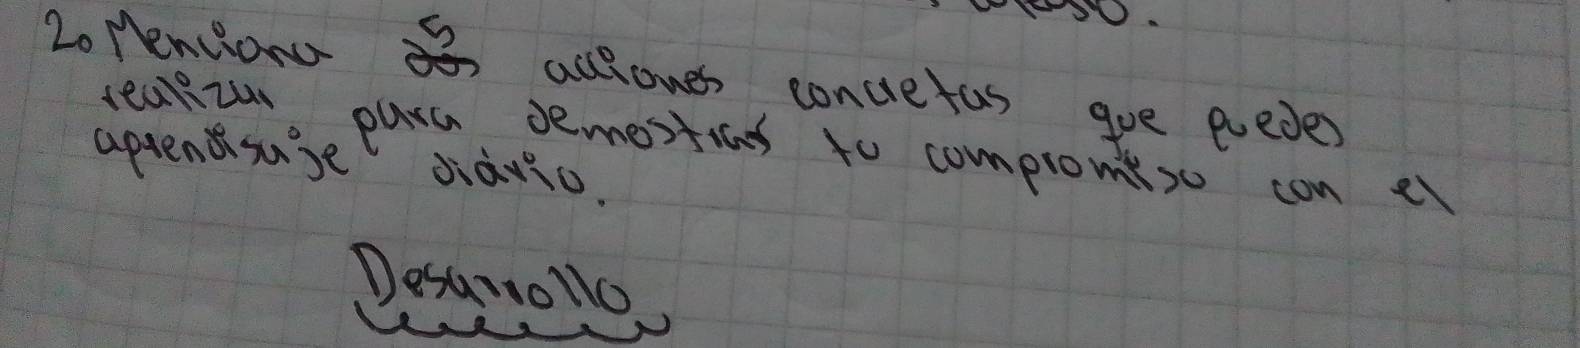 2. Menciona 5 acciones concretas que puedes
realizar para demostrar tu compromiso con el
aprendisaje diário.
Desarrollo